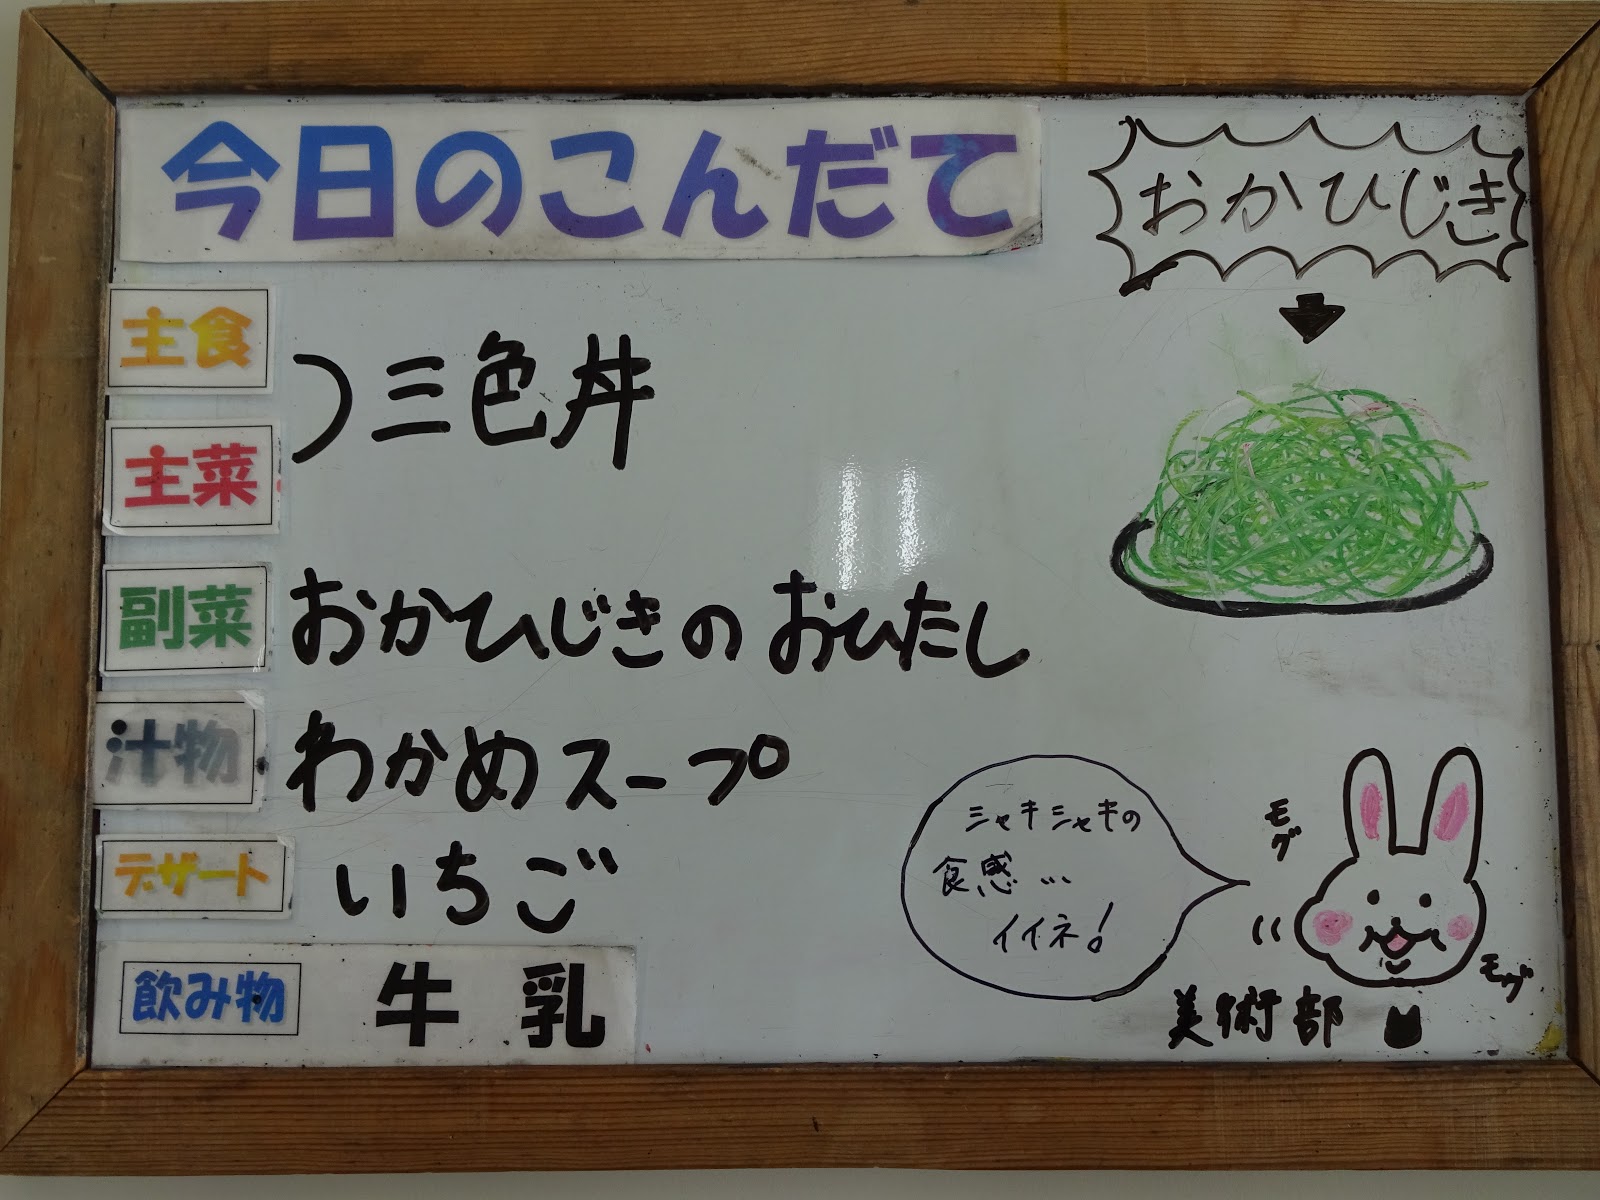 今日のこんだて
主食
主菜
三色丼
副菜 おかひじきのおひたし
汁物 わかめスープ
デザート いちご
飲み物 牛乳
おかひじき
シャキシャキの
食感…
イイネ!
モグ
モグ
美術部